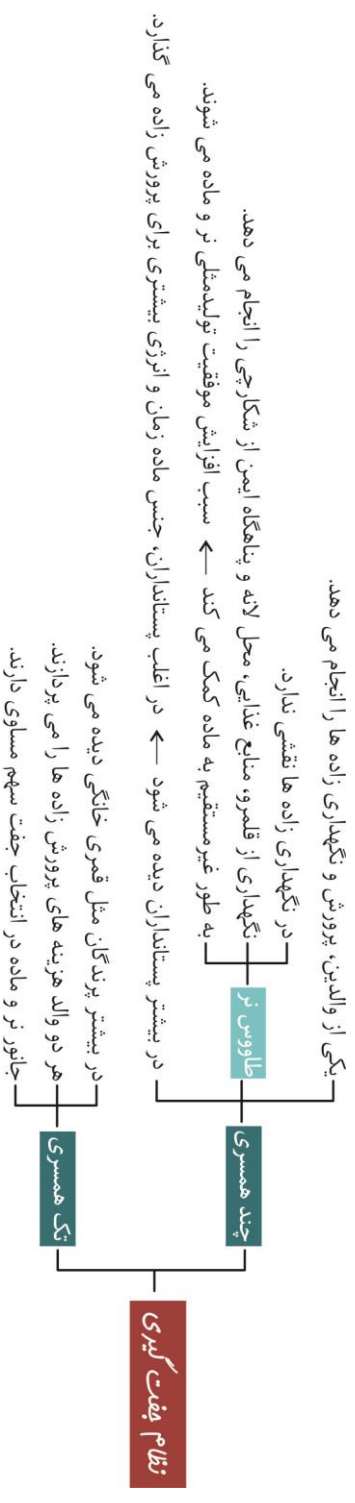 نظام جفت گیری
چند همسری
یکی از والدین، پرورش و نگهداری زاده ها را انجام می دهد.
طاووس نر
در نگهداری زاده ها نقشی ندارد.
نگهداری از قلمرو، منابع غذایی، محل لانه و پناهگاه ایمن از شکارچی را انجام می دهد.
به طور غیرمستقیم به ماده کمک می کند ← سبب افزایش موفقیت تولیدمثلی نر و ماده می شوند.
در بیشتر پستانداران دیده می شود ← در اغلب پستانداران، جنس ماده زمان و انرژی بیشتری برای پرورش زاده می گذارد.
تک همسری
در بیشتر پرندگان مثل قمری خانگی دیده می شود.
هر دو والد هزینه های پرورش زاده ها را می پردازند.
جانور نر و ماده در انتخاب جفت سهم مساوی دارند.